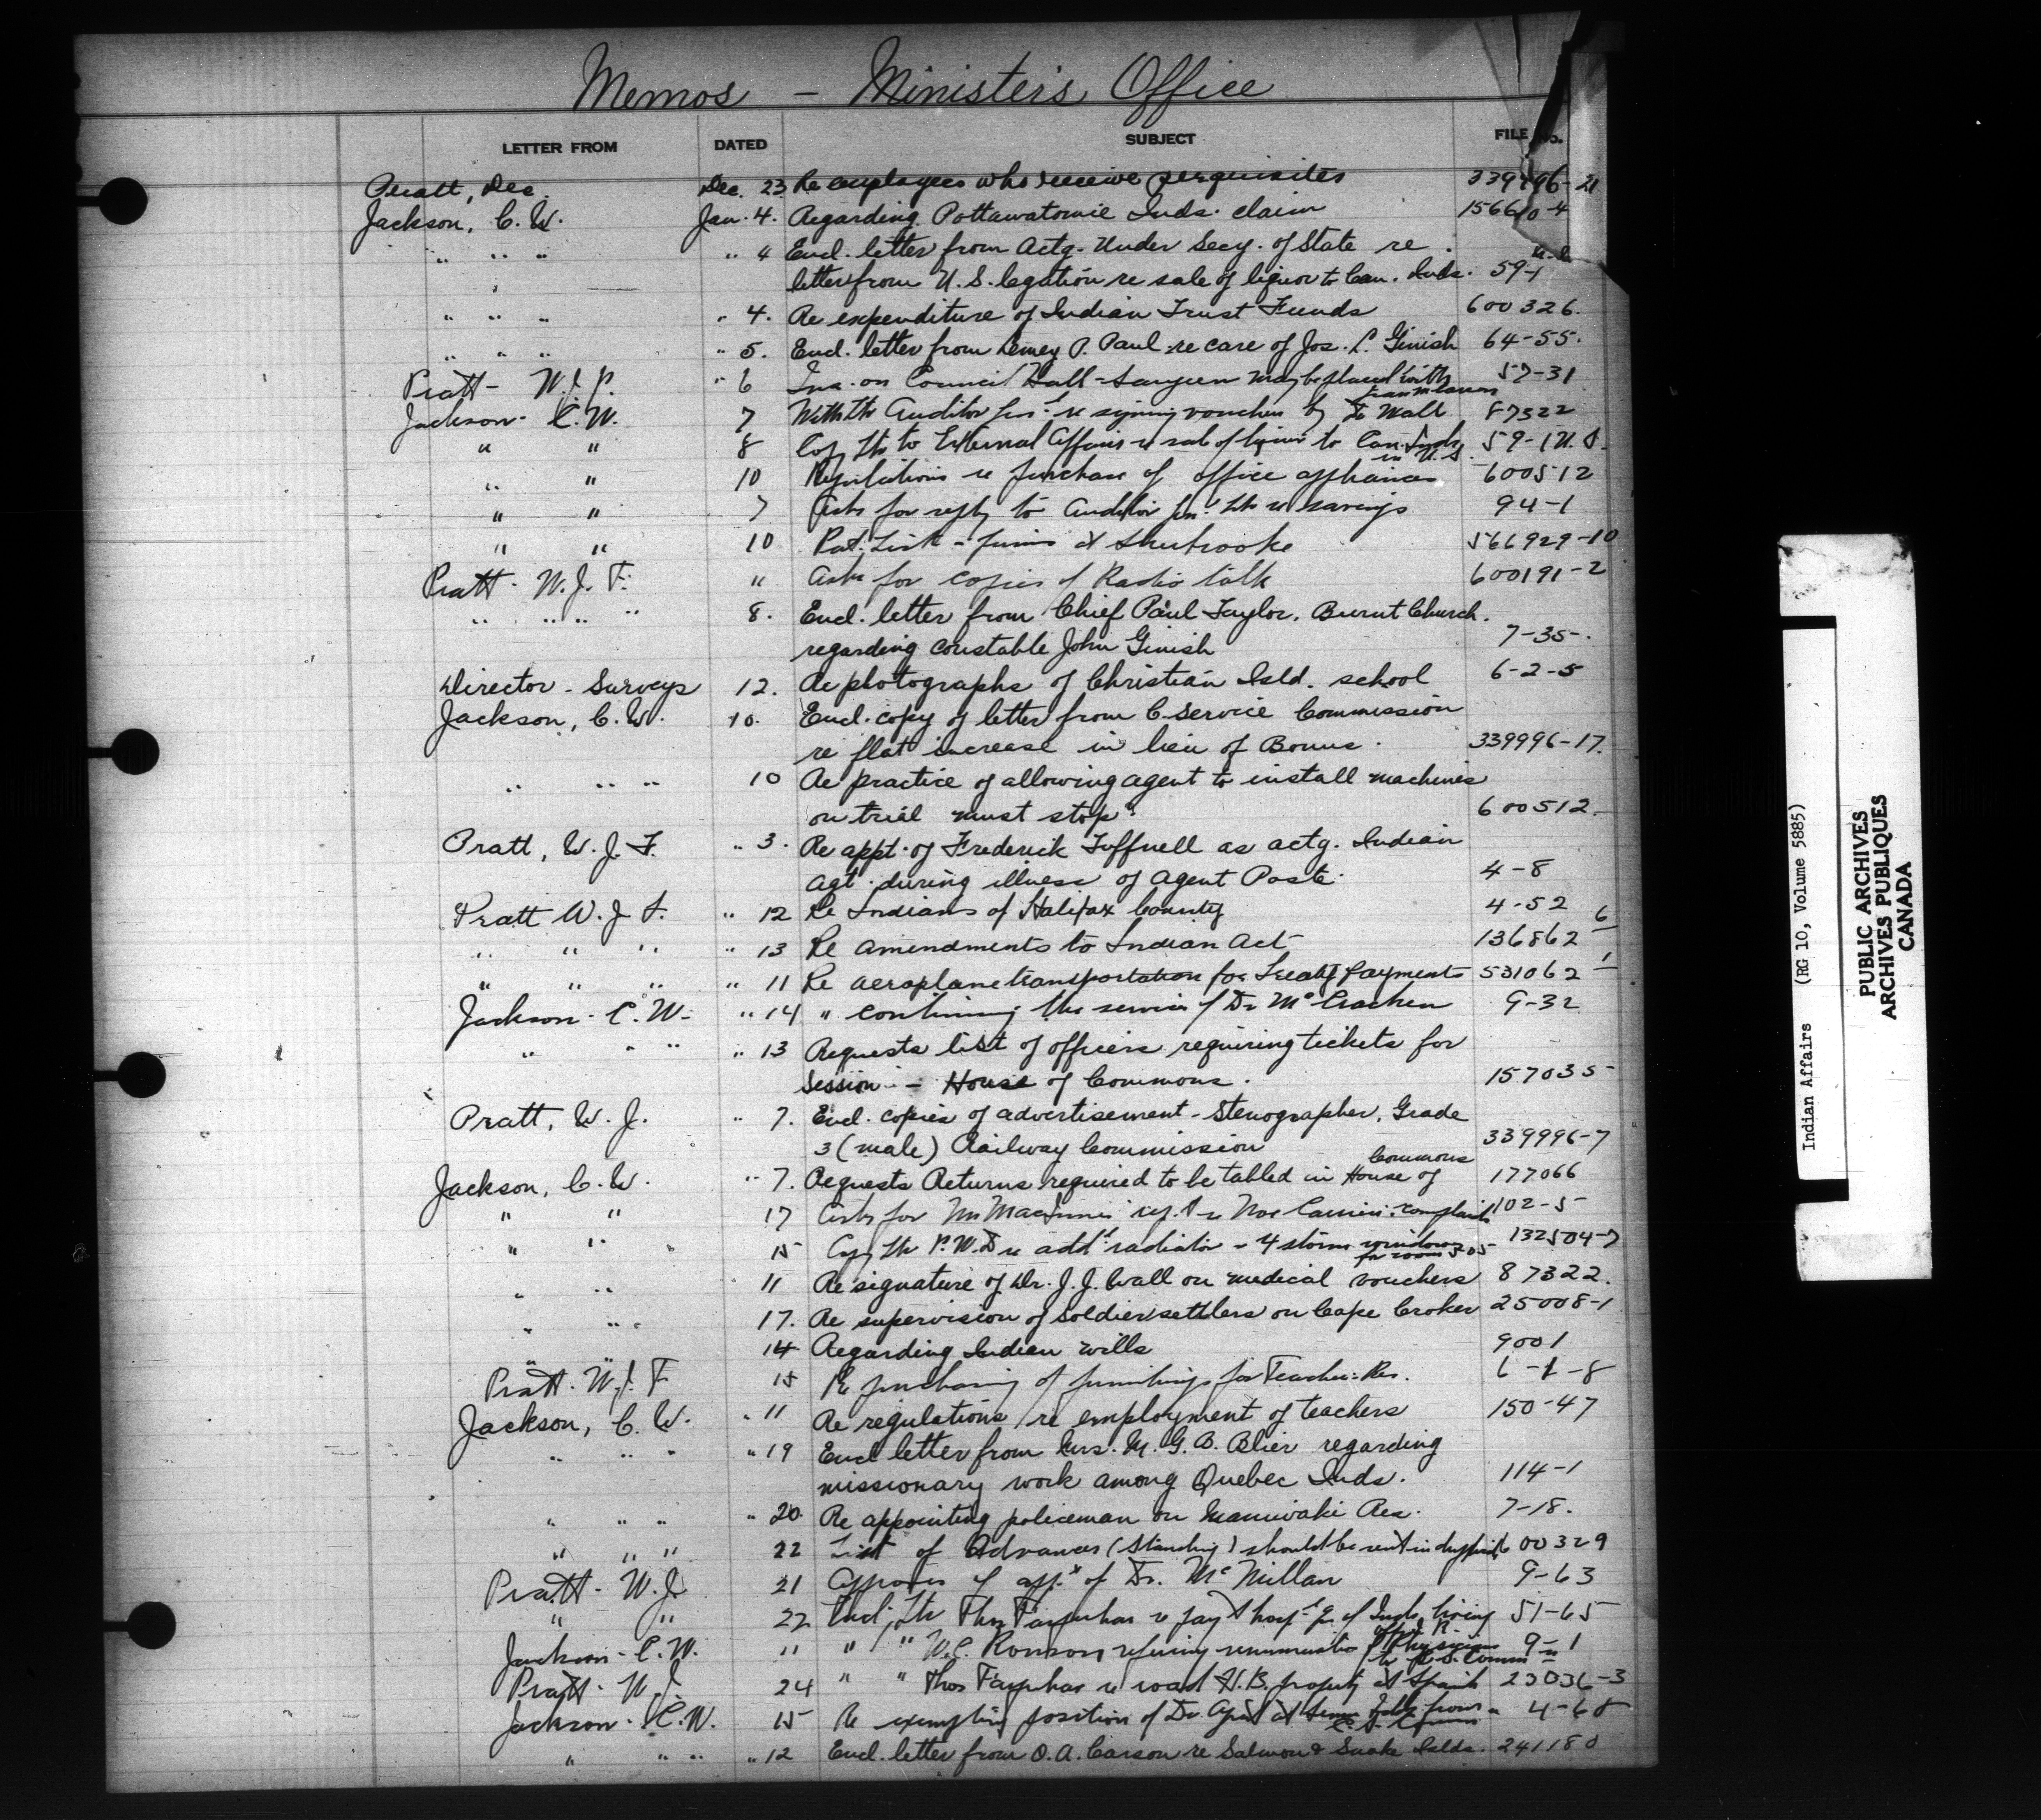 Memos - Minister's Office
LETTER FROM DATED SUBJECT FILE No.
Pratt, Dec. Dec. 23 Re employees who receive perquisites 339996-21
Jackson, C. W. Jan. 4. Regarding Pottawatomie Inds. claim 156610-4
" " " " 4 Encl. letter from Actg. Under Secy. of State re
letter from U. S. legation re sale of liquor to Can. Inds. 59-1
" " " " 4. Re expenditure of Indian Trust Funds 600326.
" " " " 5. Encl. letter from P. Paul re care of Jos. L. Ginish 64-55.
Pratt - W. J. F. " 6 Ins. on Council Hall - Saugeen may be placed with 57-31
Jackson - C. W. 7 Auditor Gen'l re signing vouchers by Dr Wall 87322
" " 8 Copy ltr to External Affairs re sale of liquor to Can. Inds in U.S. 59-1 U.S.
" " 10 Regulations re purchase of office appliances 600512
" " 7 Asks for reply to Auditor Gen. ltr re savings 94-1
" " 10 Pat. List - firms at Sherbrooke 566929-10
Pratt - W. J. F. " Asks for copies of Radio talk 600191-2
" " " " 8. Encl. letter from Chief Paul Taylor, Burnt Church.
regarding constable John Ginish 7-35-.
Director - Surveys 12. Re photographs of Christian Isld. school 6-2-5
Jackson, C. W. 10. Encl. copy of letter from C. Service Commission
re flat increase in lieu of Bonus. 339996-17.
" " " 10 Re practice of allowing agent to install machines
on trial must stop. 600512.
Pratt, W. J. F. " 3. Re appt. of Frederick Tuffnell as actg. Indian
Agt. during illness of Agent Poste. 4-8
Pratt W. J. F. " 12 Re Indians of Halifax County 4-52
" " " " 13 Re amendments to Indian Act 136862 6
" " " " 11 Re aeroplane transportation for Treaty Payments 531062 1
Jackson - C. W. " 14 " continuing the services of Dr McCracken 9-32
" " " " 13 Requests list of officers requiring tickets for
Session - House of Commons. 157035
Pratt, W. J. " 7. Encl. copies of advertisement - Stenographer, Grade
3 (male) Railway Commission 339996-7
Jackson, C. W. " 7. Requests Returns required to be tabled in House of Commons 177066
" " 17 Asks for Mr MacInnes complaint 102-5
" " 15 Copy ltr P.W.D re add'l radiator - 4 storm windows for room 505 132504-7
" " 11 Re signature of Dr. J. J. Wall on medical vouchers 87322.
" " 17. Re supervision of Soldier settlers on Cape Croker 25008-1
" " 14 Regarding Indian wills 9001
Pratt - W. J. F 15 Re purchasing of furnishings for Teachers Res. 6-1-8
Jackson, C. W. " 11 Re regulations re employment of teachers 150-47
" " " " 19 Encl letter from Mrs. M. G. B. Blier regarding
missionary work among Quebec Inds. 114-1
" " " " 20. Re appointing policeman on Maniwaki Res. 7-18.
" " " 22 List of Advances (Standing) should be sent in duplicate 600329
Pratt - W. J. 21 Approves of app't of Dr. McMillan 9-63
" " 22 Encl. ltr Thos Farquhar re pay't of Inds. living off R. 51-65
Jackson - C. W. 11 " " W.C. Ronson refusing remuneration of Physicians 9-1
Pratt - W. J. 24 " " Thos Farquhar re road H.B. property at Spanish 23036-3
Jackson - C. W. 15 Re exempting position of Dr. at from 4-68
" " " " 12 Encl. letter from O. A. Carson re Salmon & Snake Islds. 241180
Indian Affairs (RG 10, Volume 5885)
PUBLIC ARCHIVES
ARCHIVES PUBLIQUES
CANADA